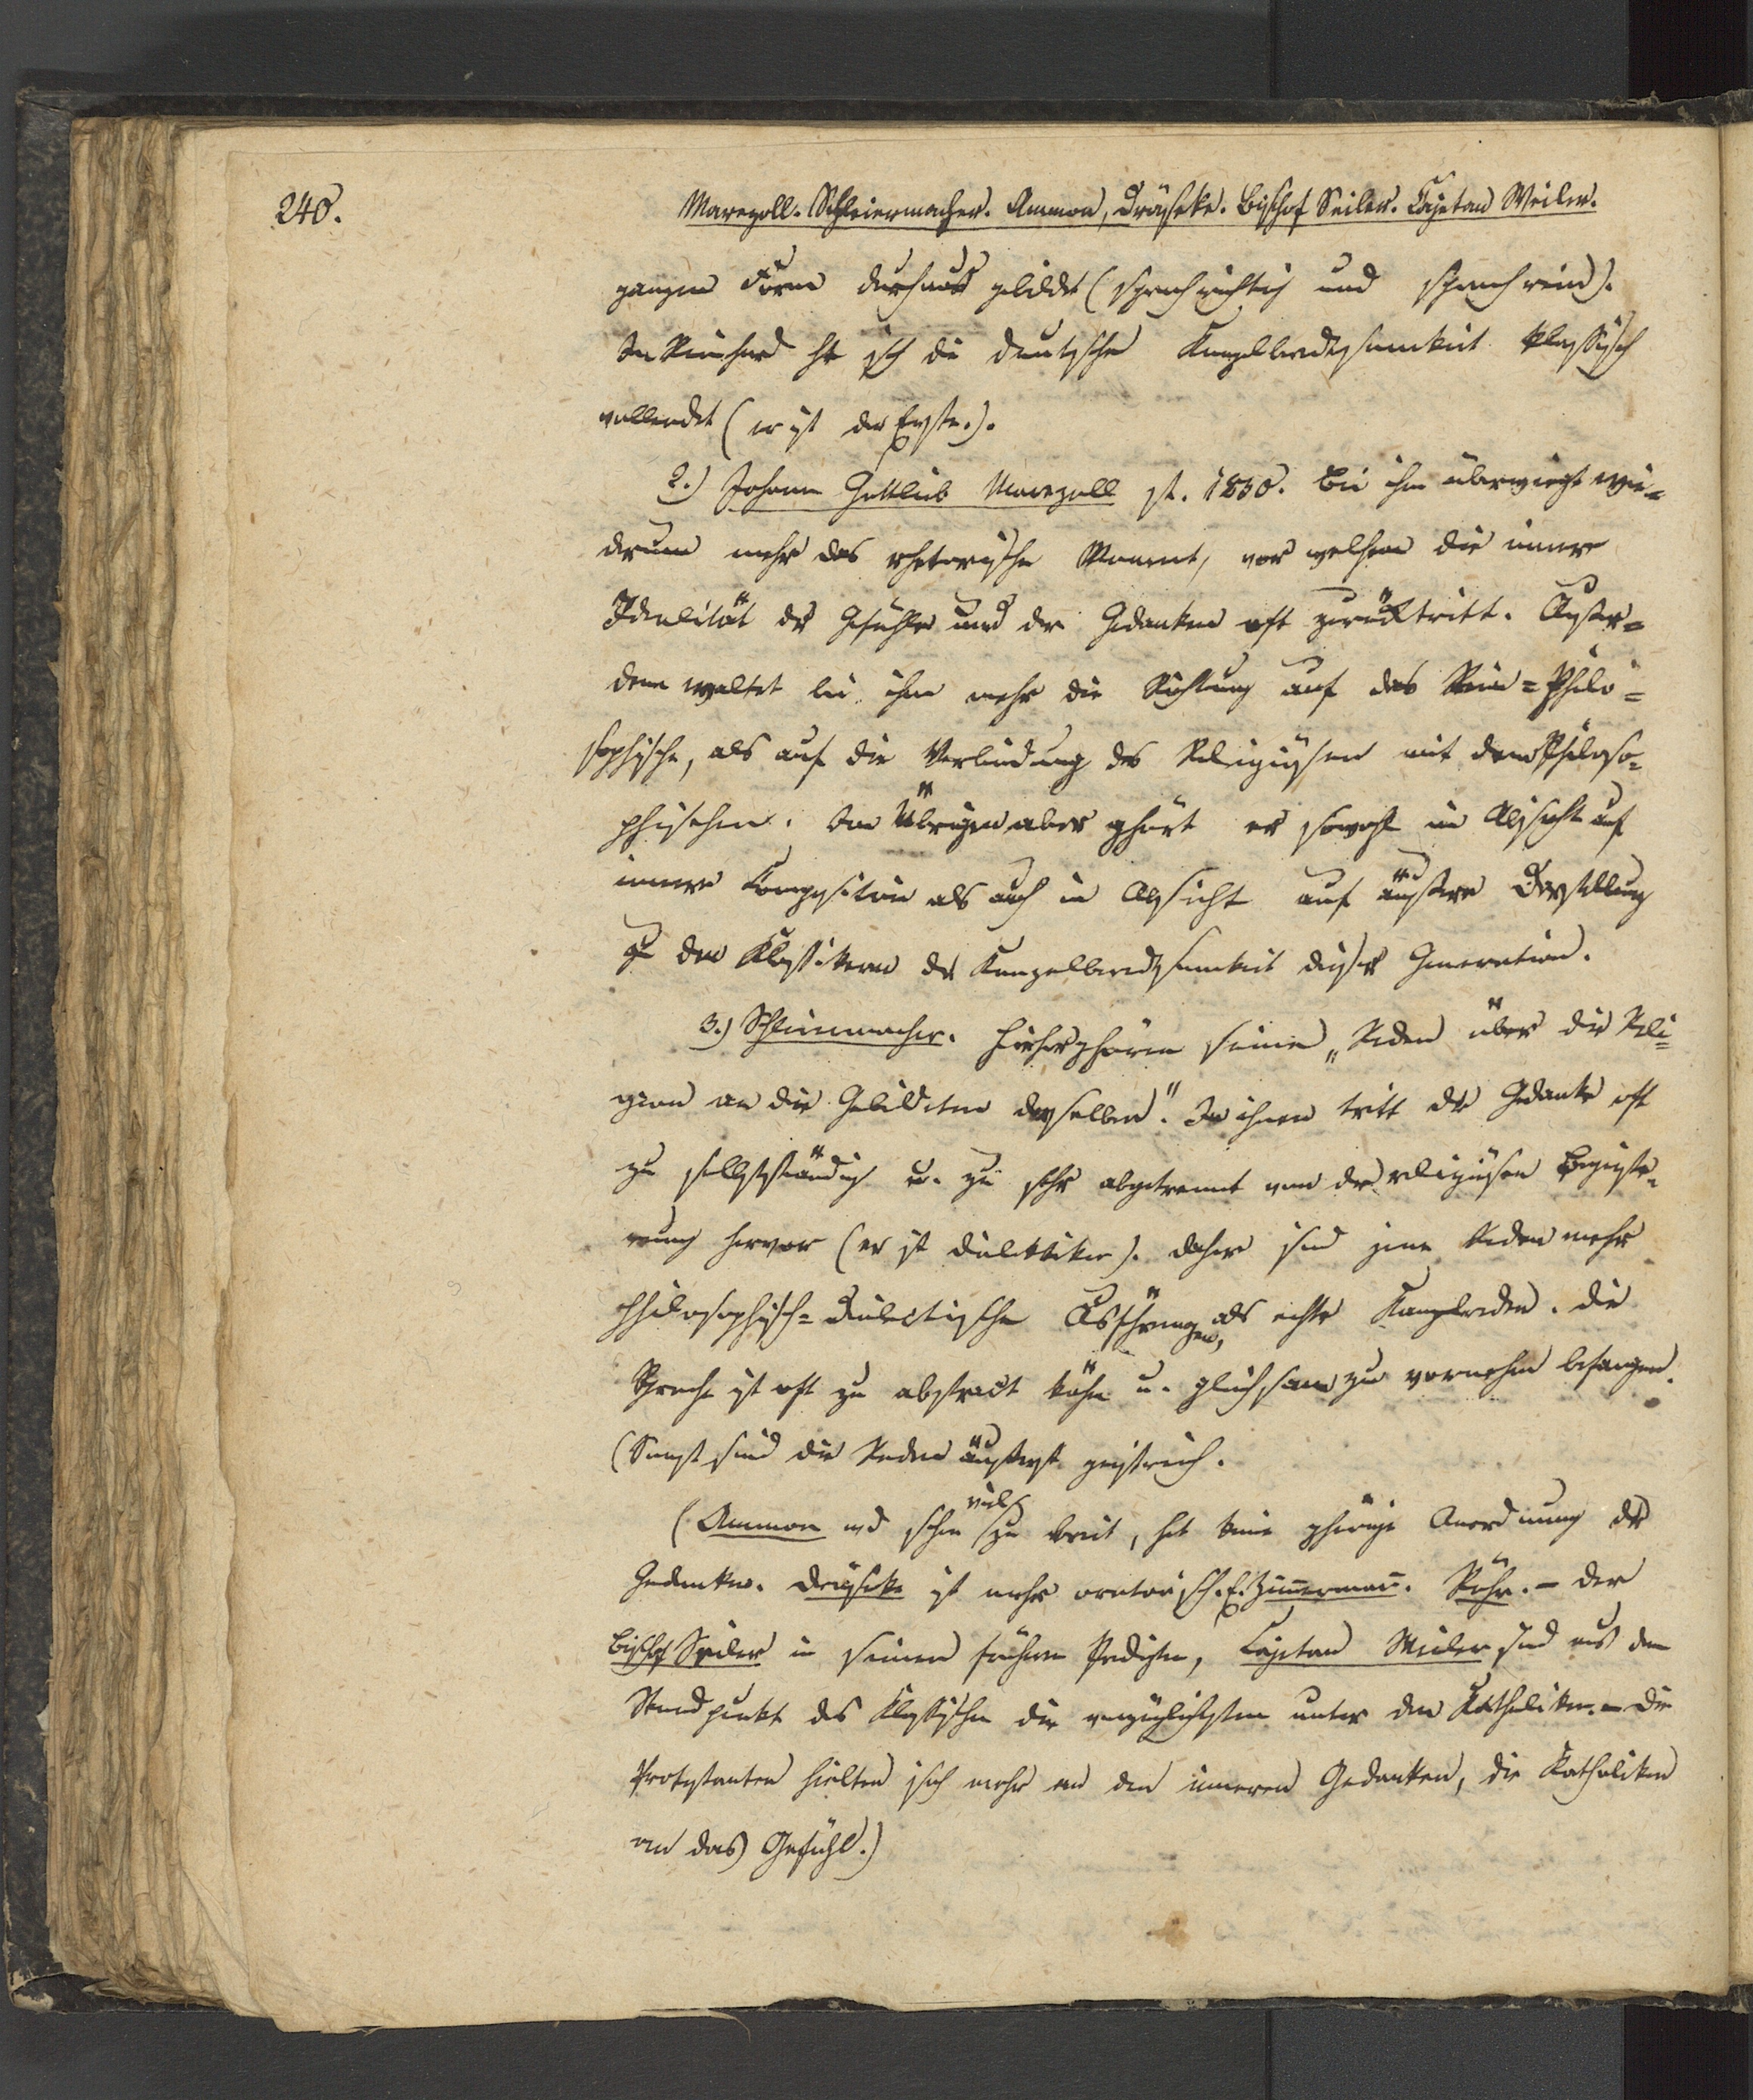 240.
Marezoll. Schleiermacher. Ammon, Dräseke. Bischof Seiler. Cajetan Weiler.
ganzen Form durchaus gebildet (sprachrichtig und sprachrein).
In Reinhard hat sich die deutsche Kanzelberedsamkeit klassisch
vollendet (er ist der Erste.).
2.) Johann Gottlieb Marezoll st. 1830. Bei ihm überwiegt wie=
derum mehr das rhetorische Moment, vor welchem die innere
Idealität der Gefühle und der Gedanken oft zurücktritt. Außer=
dem waltet bei ihm mehr die Richtung auf das Rein=Philo=
sophische, als auf die Verbindung des Religiösen mit dem Philoso=
phischen. Im Übrigen aber gehört er sowohl in Absicht auf
innere Composition als auch in Absicht auf äußere Darstellung
zu den Klassikern der Kanzelberedsamkeit dieser Generation.
3.) Schleiermacher. Hierher gehören seine „Reden über die Reli=
gion an die Gebildeten derselben“. In ihnen tritt der Gedanke oft
zu selbstständig u. zu sehr abgetrennt von der religiösen Begeiste=
rung hervor (er ist Dialektiker). Daher sind jene Reden mehr
philosophisch=dialectische als echte Kanzelreden. Die
Sprache ist oft zu abstract kühn u. gleichsam zu vornehm befangen.
(Sonst sind die Reden äußerst geistreich.
(Ammon wird schon viel zu breit, hat keine gehörige Anordnung der
Gedanken. Dräseke ist mehr oratorisch. E. Zimmermann. Röhr. – Der
Bischof Seiler in seinen frühern Predigten, Cajetan Weiler sind aus dem
Standpunkt des Klassischen die vorzüglichsten unter den Katholiken. – Die
Protestanten hielten sich mehr an den inneren Gedanken, die Katholiken
an das Gefühl.)